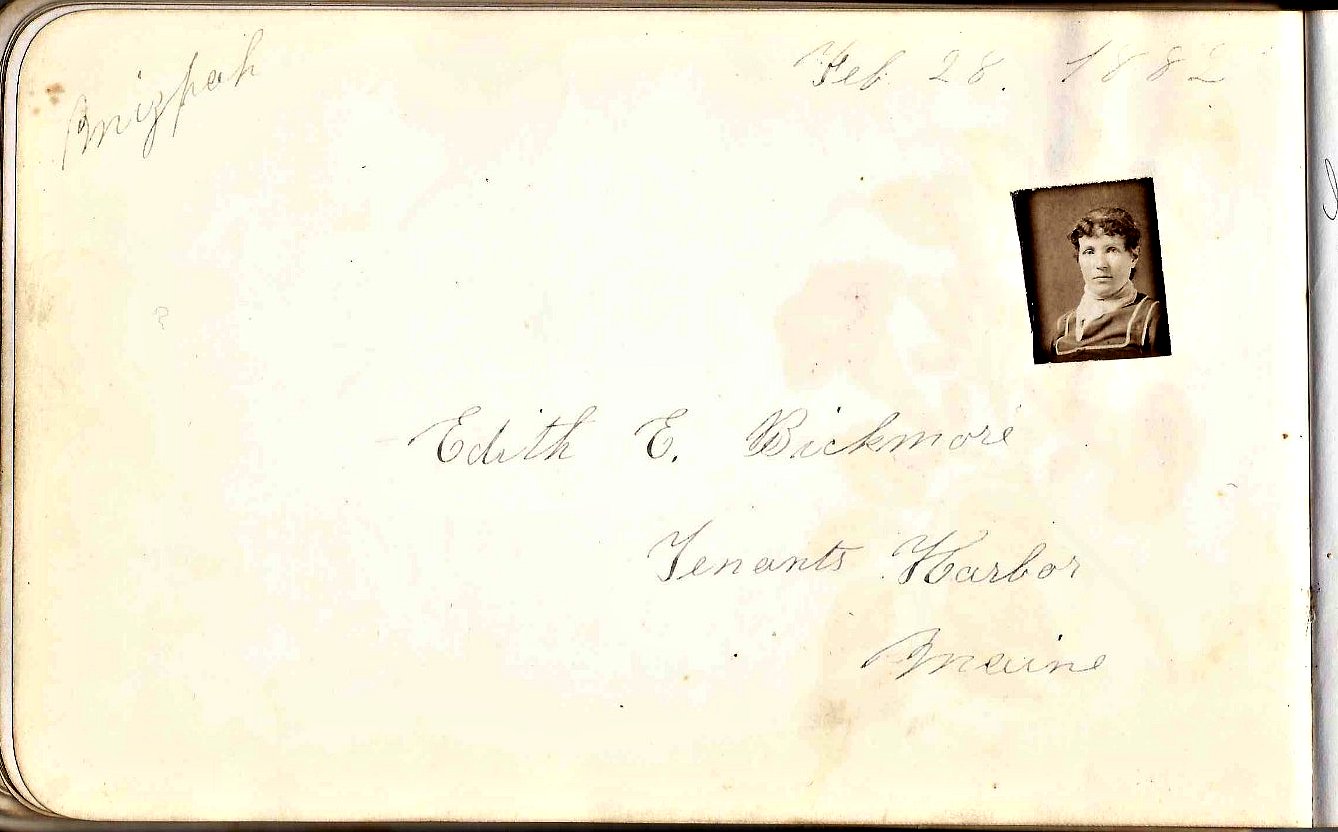 Mizpah
Feb. 28. 1882
Edith E. Bickmore
Tenants Harbor
Maine